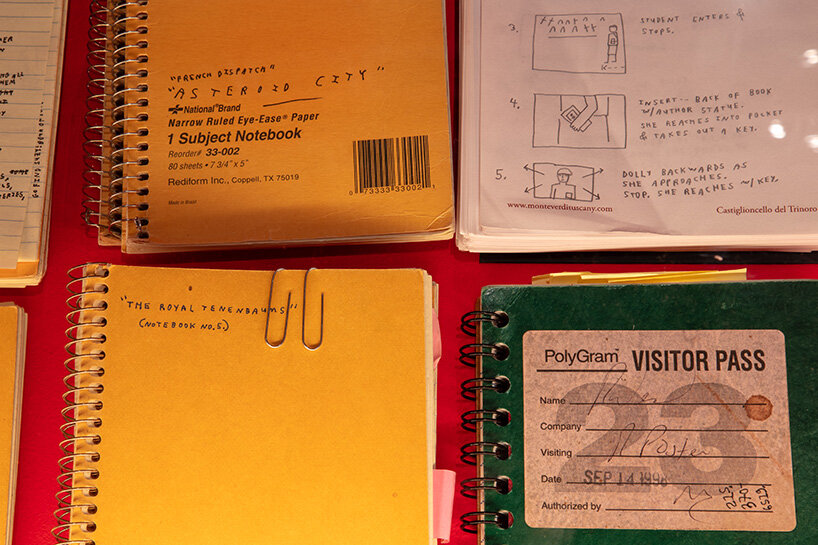 "FRENCH DISPATCH"
"ASTEROID CITY"
National® Brand
Narrow Ruled Eye-Ease® Paper
1 Subject Notebook
Reorder# 33-002
80 sheets • 7 3/4" x 5"
Rediform Inc., Coppell, TX 75019
Made in Brazil
0 73333 33002 1
3. STUDENT ENTERS &
STOPS.
4. INSERT -- BACK OF BOOK
W/AUTHOR STATUE.
SHE REACHES INTO POCKET
& TAKES OUT A KEY.
5. DOLLY BACKWARDS AS
SHE APPROACHES.
STOP. SHE REACHES W/KEY.
www.monteverdituscany.com Castiglioncello del Trinoro
"THE ROYAL TENENBAUMS"
(NOTEBOOK NO. 5.)
PolyGram™ VISITOR PASS
23
Name
Company
Visiting
Date SEP 14 1998
Authorized by